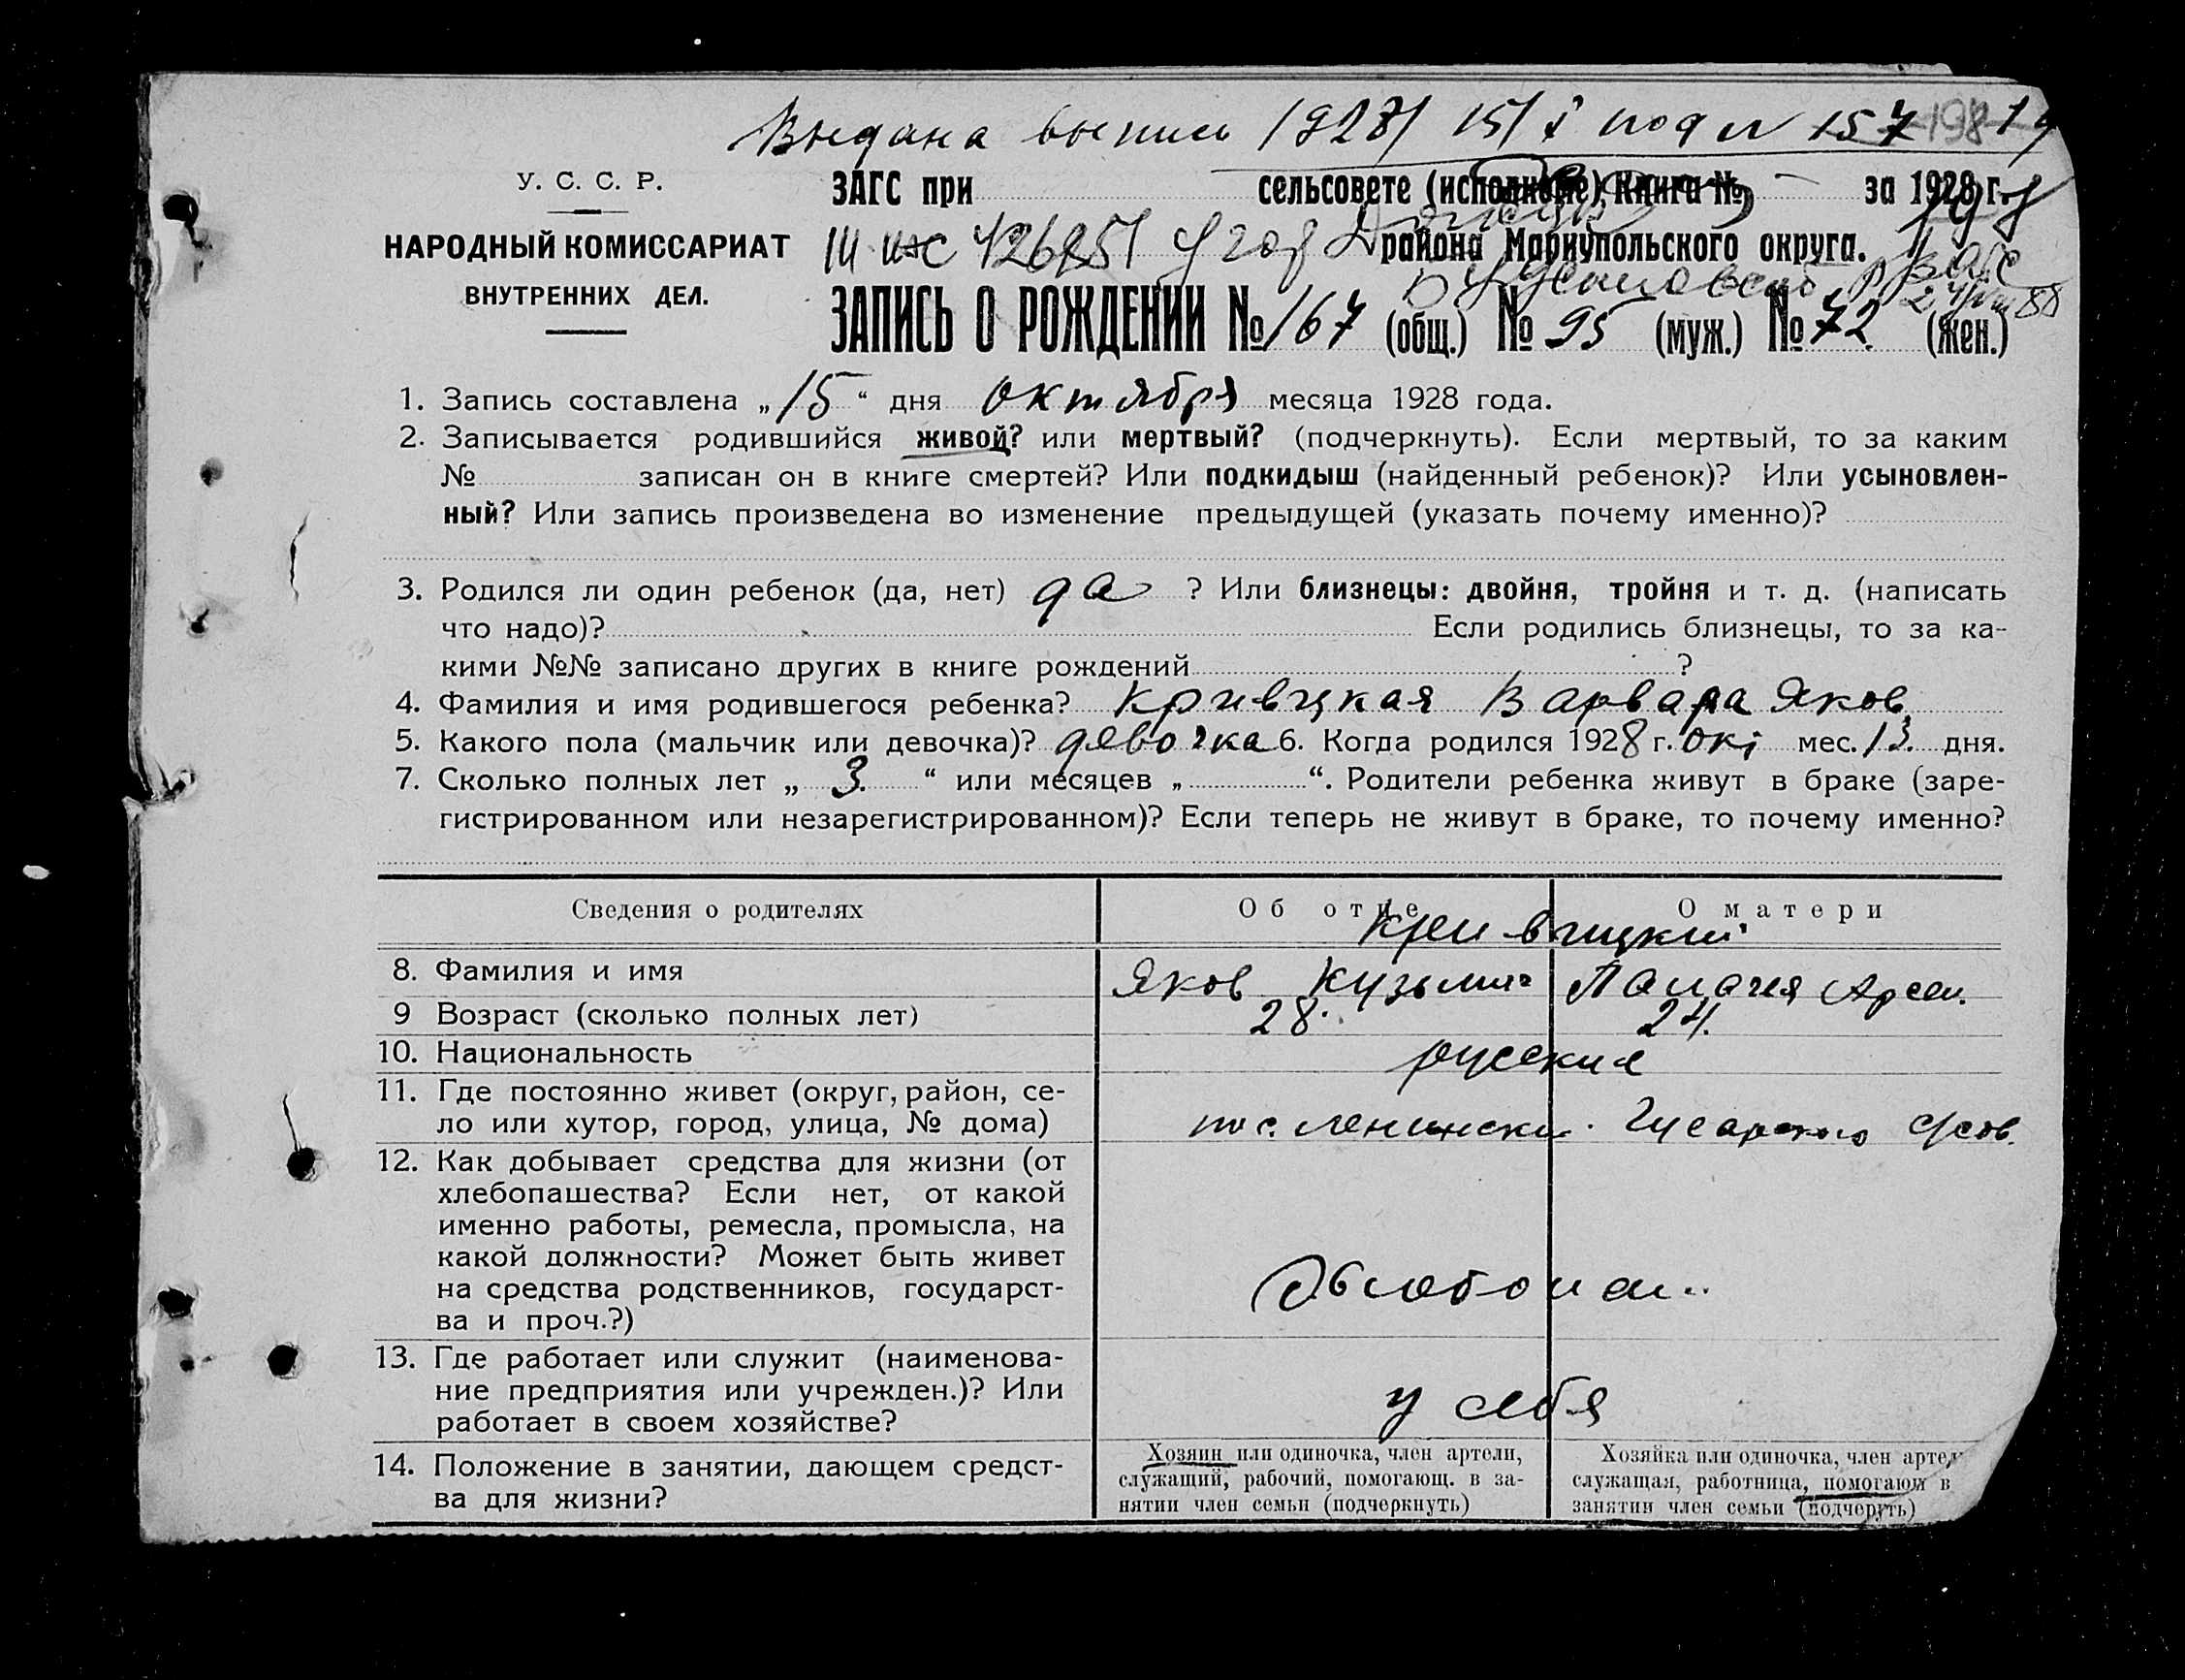 Выдана выпись 1928/ 15/X под № 157 198
У. С. С. Р.
ЗАГС при сельсовете (исполкоме), Книга № за 1928 г.
НАРОДНЫЙ КОМИССАРИАТ
района Мариупольского округа.
ВНУТРЕННИХ ДЕЛ.
ЗАПИСЬ О РОЖДЕНИИ № 167 (общ.) № 95 (муж.) № 72 (жен.)
1. Запись составлена „15“ дня октября месяца 1928 года.
2. Записывается родившийся живой? или мертвый? (подчеркнуть). Если мертвый, то за каким
№ записан он в книге смертей? Или подкидыш (найденный ребенок)? Или усыновлен-
ный? Или запись произведена во изменение предыдущей (указать почему именно)?
3. Родился ли один ребенок (да, нет) да ? Или близнецы: двойня, тройня и т. д. (написать
что надо)? Если родились близнецы, то за ка-
кими №№ записано других в книге рождений ?
4. Фамилия и имя родившегося ребенка? Кривицкая Варвара Яков.
5. Какого пола (мальчик или девочка)? девочка 6. Когда родился 1928 г. окт мес. 13. дня.
7. Сколько полных лет „ 3. “ или месяцев „ “. Родители ребенка живут в браке (заре-
гистрированном или незарегистрированном)? Если теперь не живут в браке, то почему именно?
Сведения о родителях Об отце О матери
Кривицкий
8. Фамилия и имя Яков Кузьмич Арсен.
9 Возраст (сколько полных лет) 28. 24.
10. Национальность русские
11. Где постоянно живет (округ, район, се-
ло или хутор, город, улица, № дома) пос. Ленински. Гусарского с/сов.
12. Как добывает средства для жизни (от
хлебопашества? Если нет, от какой
именно работы, ремесла, промысла, на
какой должности? Может быть живет
на средства родственников, государст-
ва и проч.?)
13. Где работает или служит (наименова-
ние предприятия или учрежден.)? Или
работает в своем хозяйстве? у себя
14. Положение в занятии, дающем средст-
ва для жизни?
Хозяин или одиночка, член артели,
служащий, рабочий, помогающ. в за-
нятии член семьи (подчеркнуть)
Хозяйка или одиночка, член артел
служащая, работница, помогающ в
занятии член семьи (подчеруть)